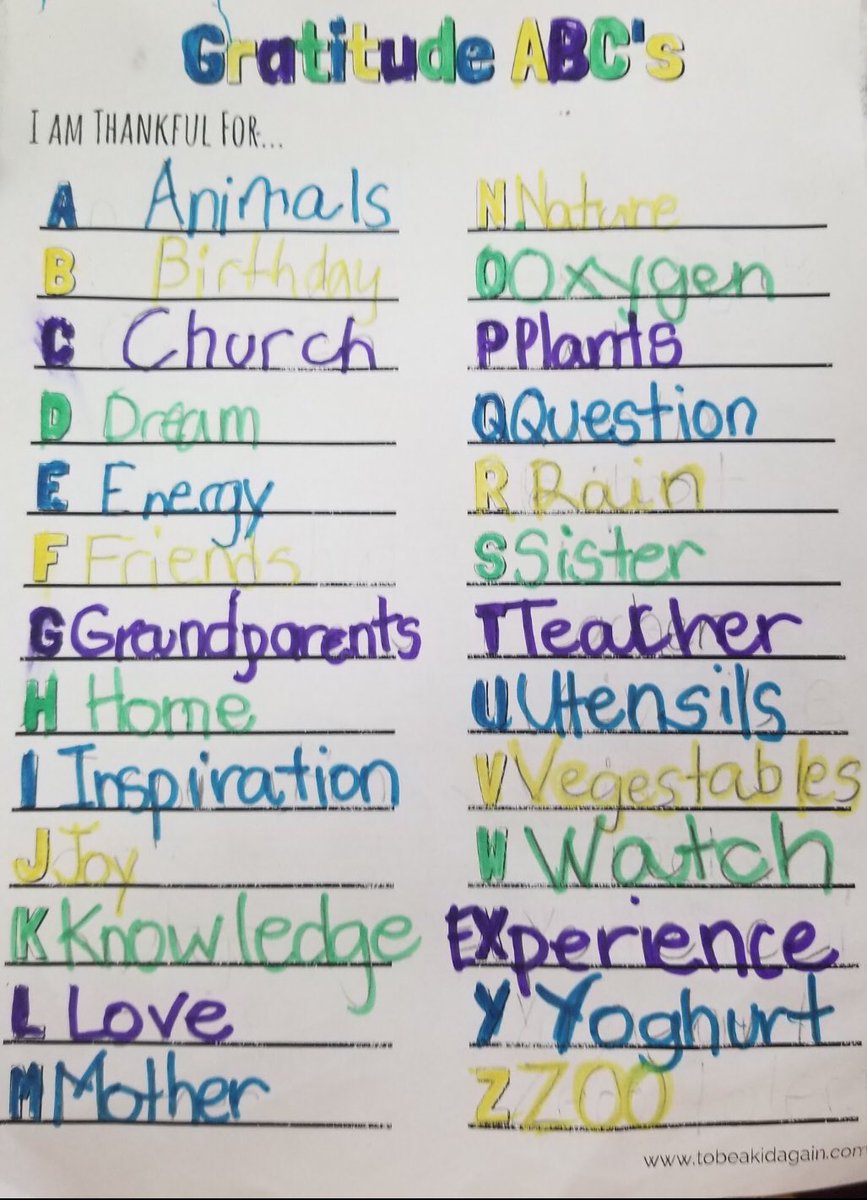 Gratitude ABC's
I AM THANKFUL FOR...
A Animals
B Birthday
C Church
D Dream
E Energy
F Friends
G Grandparents
H Home
I Inspiration
J Joy
K Knowledge
L Love
M Mother
N Nature
O Oxygen
P Plants
Q Question
R Rain
S Sister
T Teacher
U Utensils
V Vegestables
W Watch
EXperience
Y Yoghurt
Z ZOO
www.tobeakidagain.com